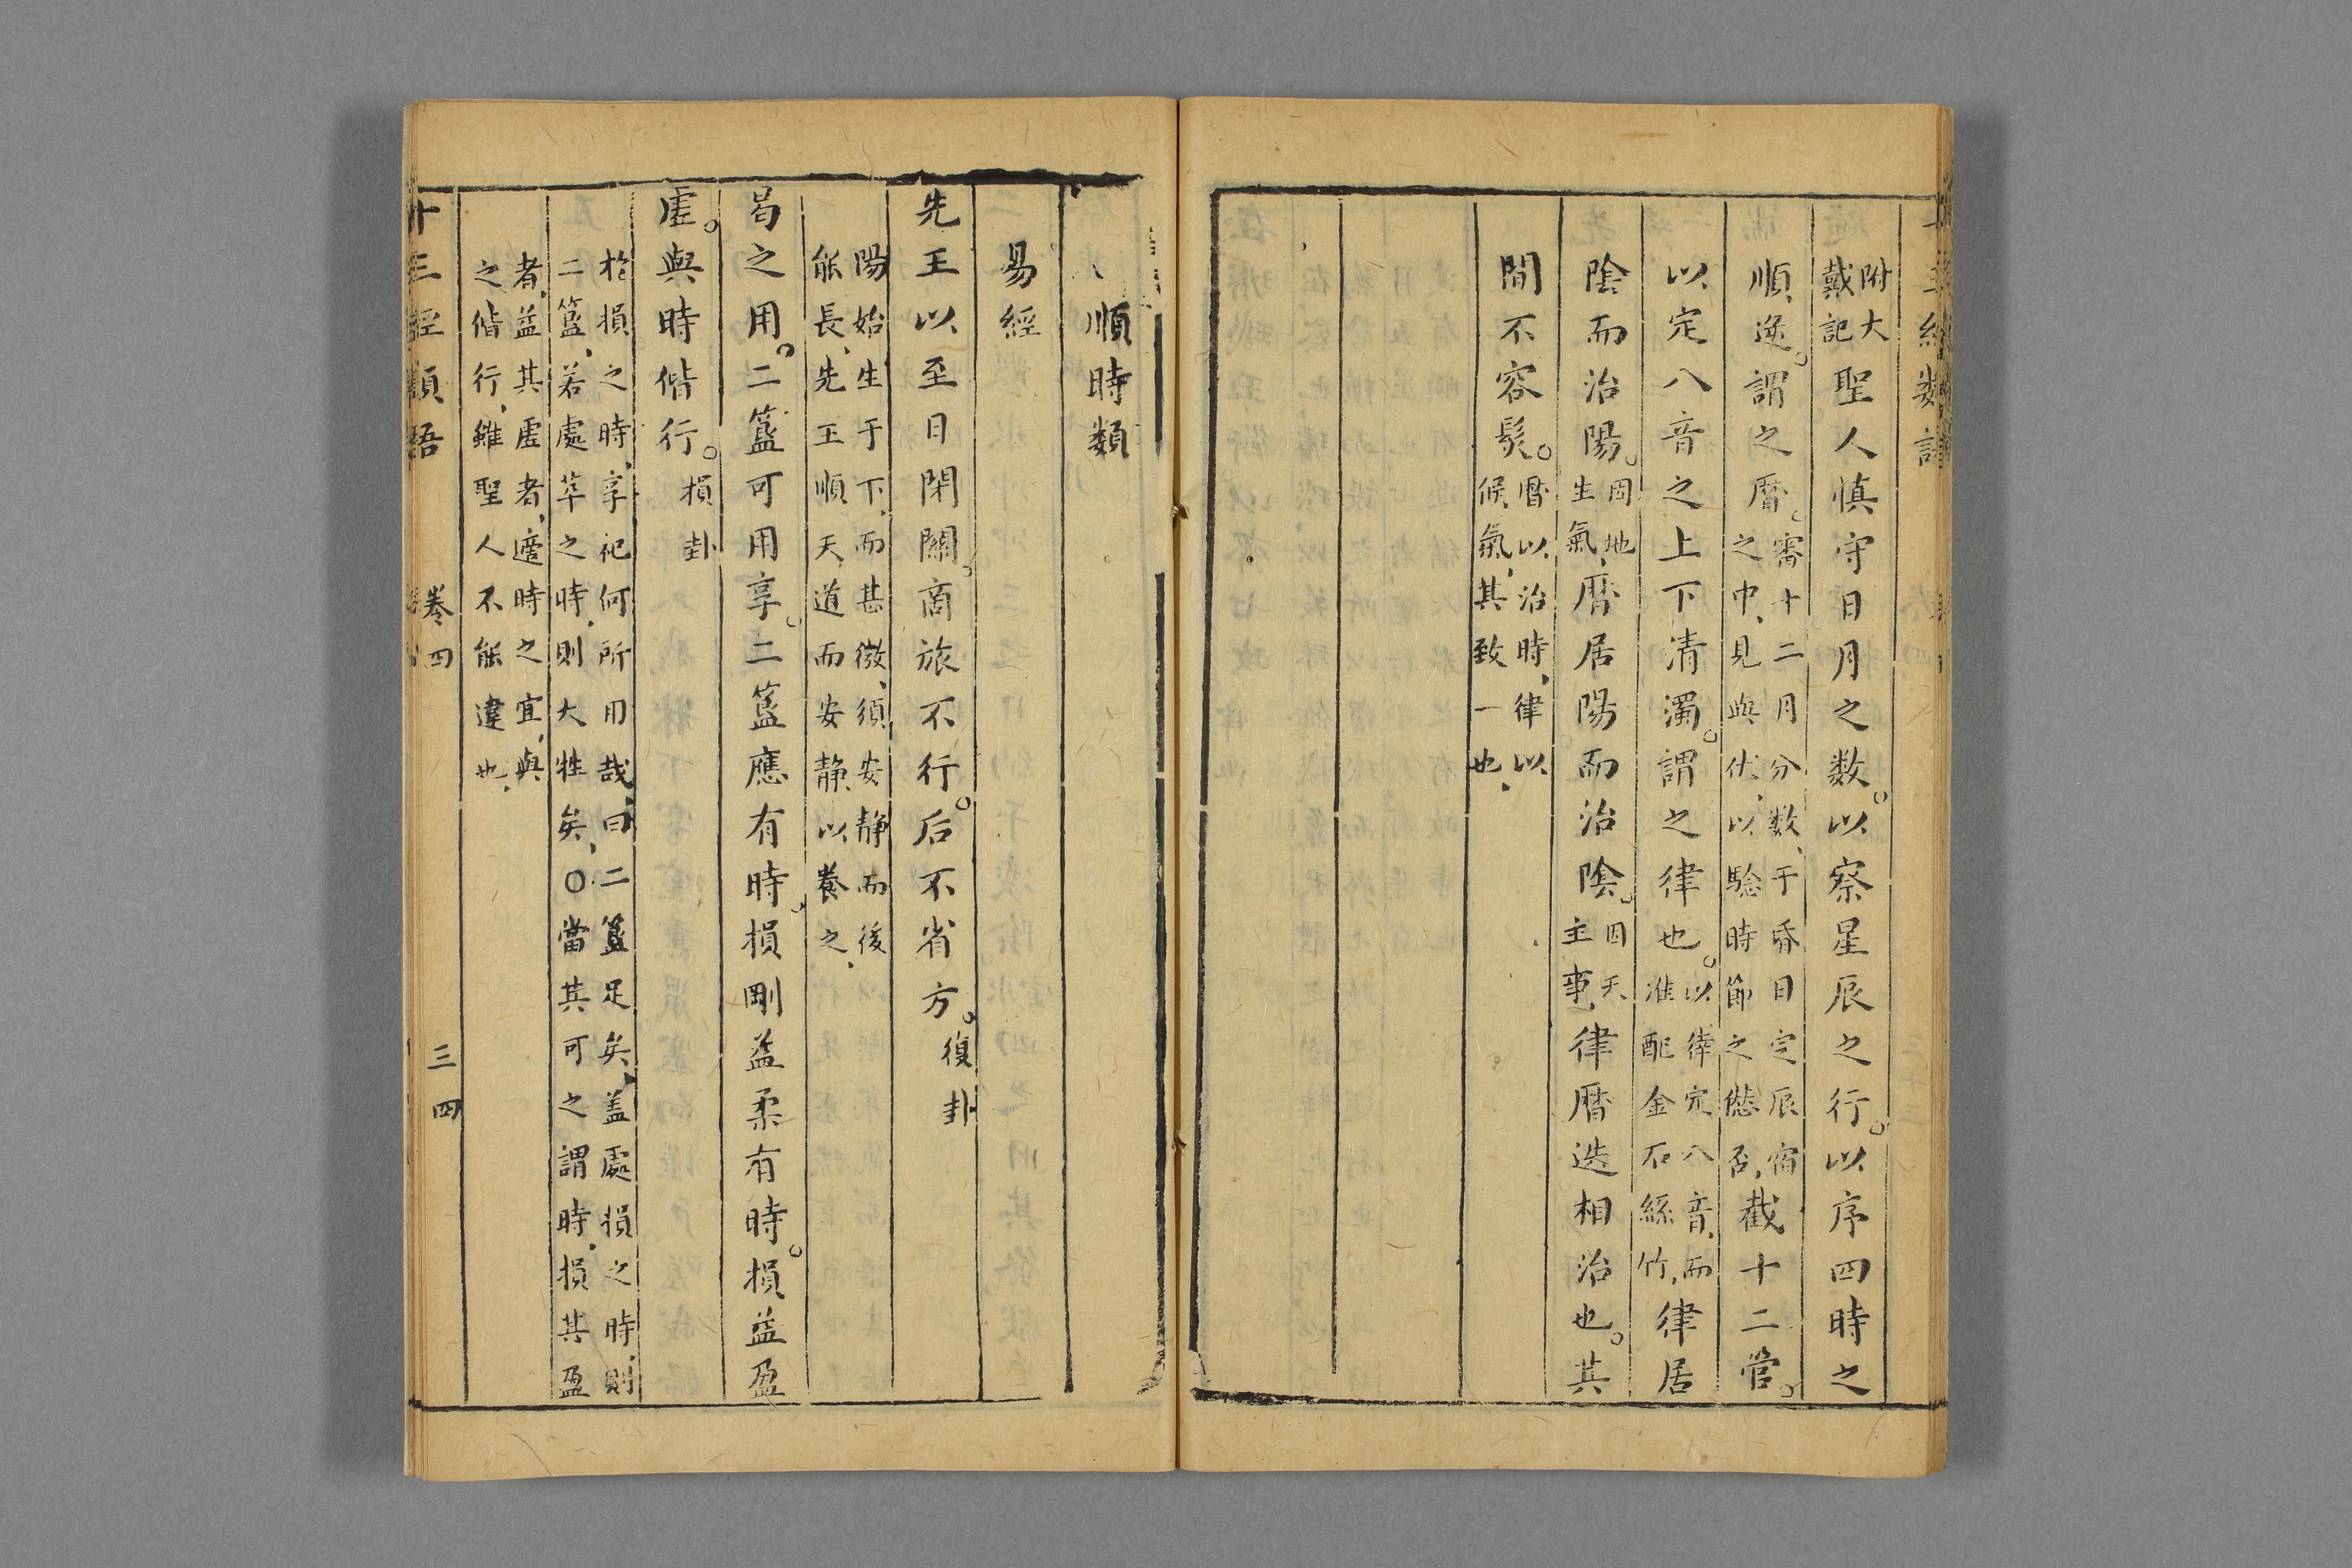 十三經類語
附大戴記 聖人慎守日月之数以察星辰之行以序四時之
順逆謂之曆審十二月分数于昏日定辰宿之中見與伏以驗時節之愆否截十二管
以定八音之上下清濁謂之律也以律定八音而准配金石絲竹律居
陰而治陽因地生氣曆居陽而治陰因天主事律曆迭相治也其
間不容髮曆以治時律以候氣其致一也
順時類
易經
先王以至日閉關商旅不行后不省方復卦
陽始生于下而甚微須安静而後能長先王順天道而安静以養之
曷之用二簋可用享二簋應有時損剛益柔有時損益盈
虛與時偕行損卦
於損之時享祀何所用哉曰二簋足矣盖處損之時則二簋若處萃之時則大牲矣○當其可之謂時損其盈
者益其虛者適時之宜與之偕行雖聖人不能違也
十三經類語 卷四 三四